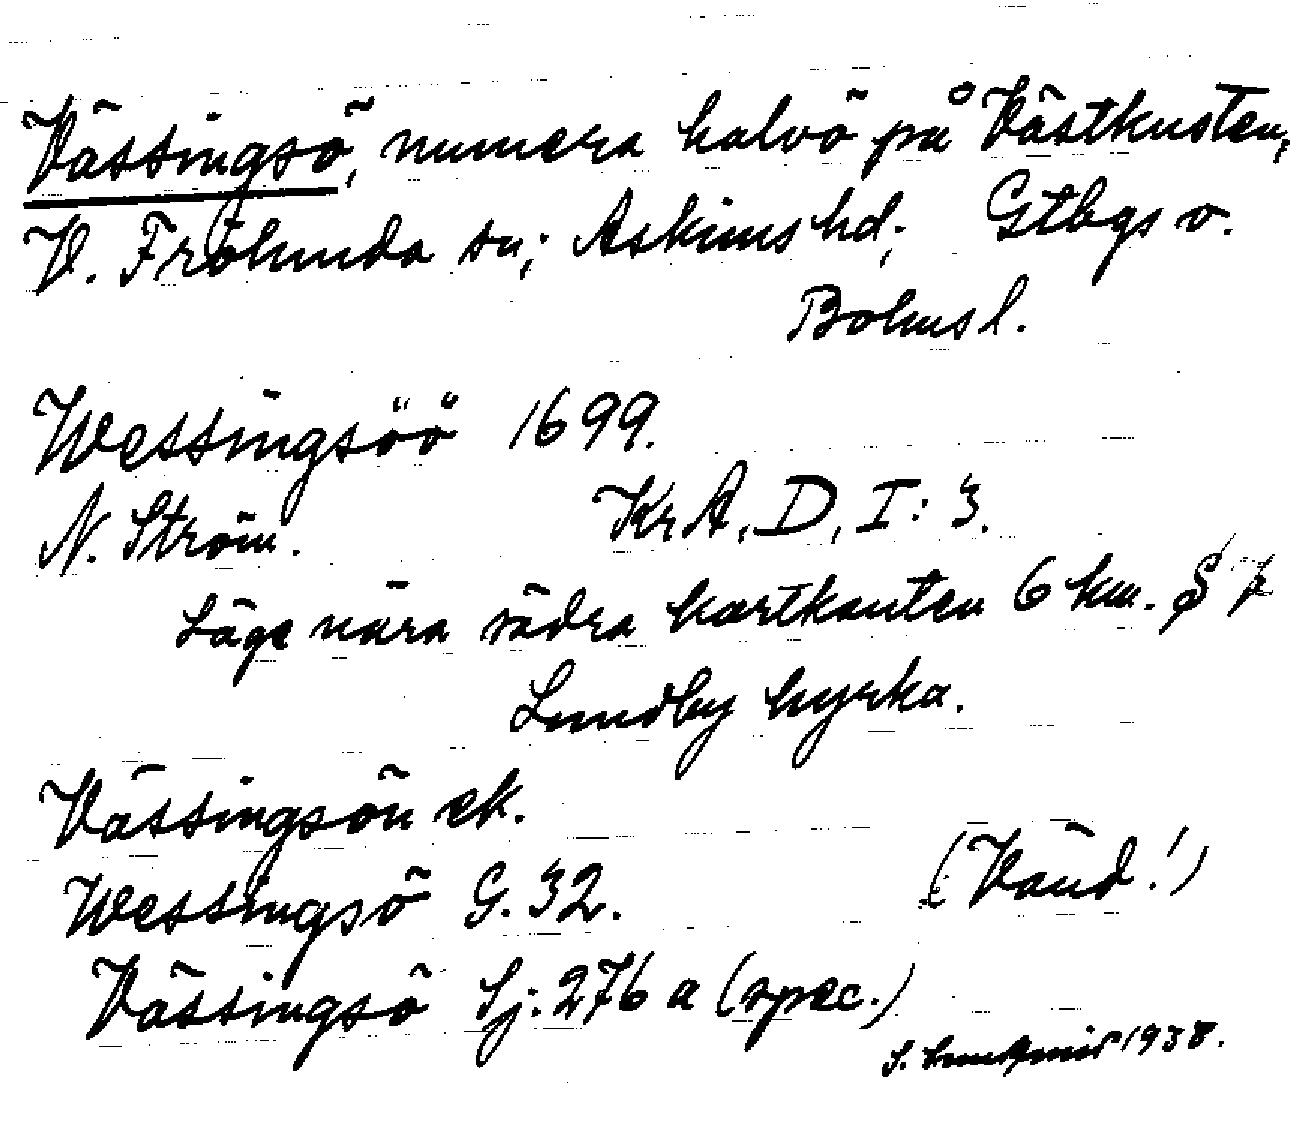 Vässingsö, numera halvö på Västkusten,
V. Frölunda sn; Askims hd; Gtbgs o.
Bohusl.
Wessingsöö 1699.
N. Ström. KrA, D, I: 3.
Läge nära södra kartkanten 6 km. S
Lundby kyrka.
Vässingsön ek.
Wessingsö G. 32. (Vänd!)
Vässingsö Sj. 276 a (spec.)
S. 1938.